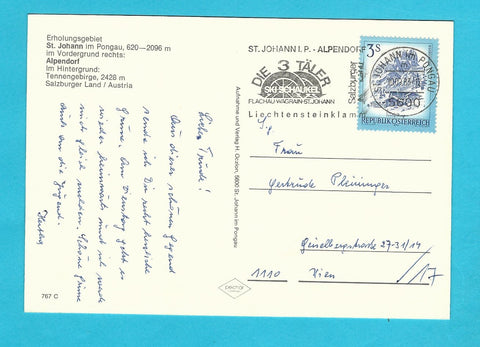 Erholungsgebiet
St. Johann im Pongau, 620—2096 m
im Vordergrund rechts:
Alpendorf
im Hintergrund:
Tennengebirge, 2428 m
Salzburger Land / Austria
Liebe Trude!
Aus dieser schönen Gegend
sende ich Dir recht herzliche
Grüsse. Am Dienstag geht es
wieder heimwärts und ich werde
mich gleich melden. Schöne Grüsse
auch an die
Herbert
767 C
Aufnahme und Verlag H. Oczlon, 5600 St. Johann im Pongau
ST. JOHANN I.P. - ALPENDORF
DIE 3 TÄLER
SKI-SCHAUKEL
FLACHAU-WAGRAIN-ST.JOHANN
Liechtensteinklamm
Salzburger
ST. JOHANN IM PONGAU
5600
3S
REPUBLIK ÖSTERREICH
Frau
Gertrude
Geiselbergstraße 27-31/14
1110 Wien /17